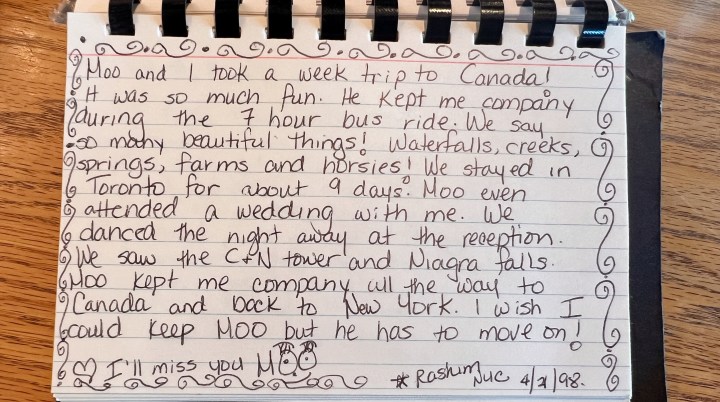 Moo and I took a week trip to Canada!
It was so much fun. He kept me company
during the 7 hour bus ride. We say
so many beautiful things! Waterfalls, creeks,
springs, farms and horsies! We stayed in
Toronto for about 9 days. Moo even
attended a wedding with me. We
danced the night away at the reception.
We saw the C+N tower and Niagra falls.
Moo kept me company all the way to
Canada and back to New York. I wish I
could keep MOO but he has to move on!
♡ I'll miss you MOO
* Rashim Nuc 4/21/98.